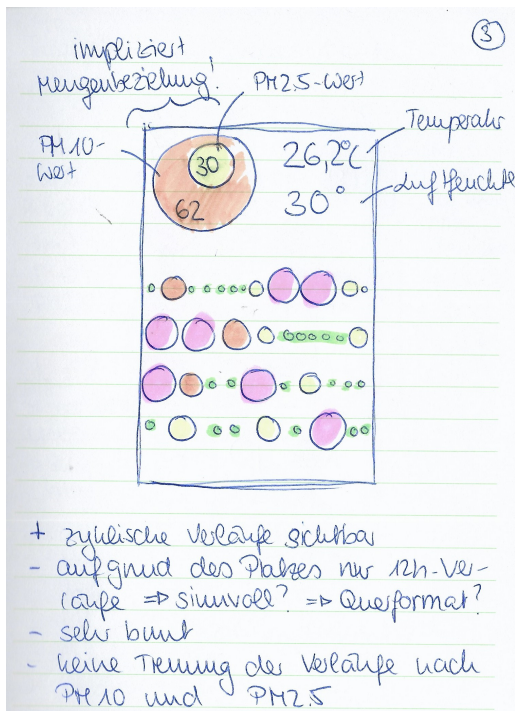 3
impliziert
Mengenbeziehung!
PM2.5-Wert
Temperatur
PM10-
Wert
30
26,2°C
Luftfeuchte
62
30°
+ zyklische Verläufe sichtbar
- aufgrund des Platzes nur 12h-Ver-
läufe => sinnvoll? => Querformat?
- sehr bunt
- keine Trennung der Verläufe nach
PM10 und PM2.5